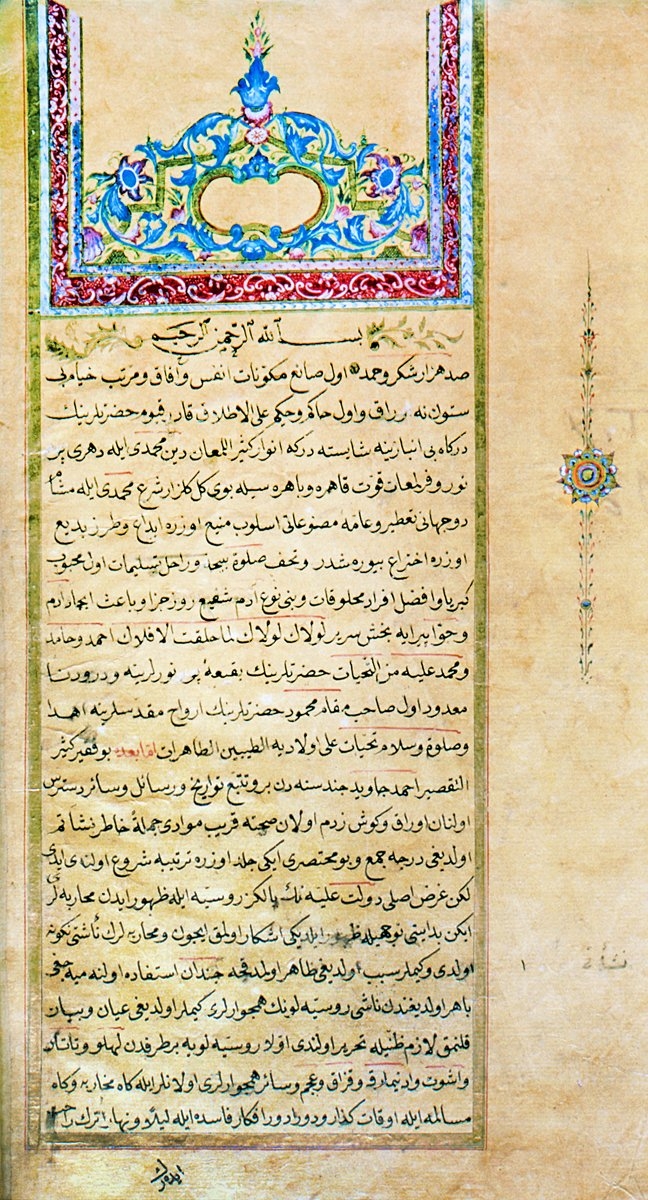 بسم الله الرحمن الرحيم
صد هزار شكر و حمد اول صانع مكونات انفس و آفاق و مرتب خيام بى
ستون نه رواق و اول حاكم و حكيم على الاطلاق قادر قيوم حضرتلرينك
دركاه بى انبازينه شايسته دركه انوار كثير اللمعان دين محمدى ايله دهرى پر
نور و فر قوت قاهره و باهره سيله بوى كل كلزار شرع محمدى ايله مشام
دو جهانى تعطير و عامهٔ مصنوعاتى اسلوب منيع اوزره ابداع و طرز بديع
اوزره اختراع بيوره شدر و تحف صلوة بيحد و تسليمات اول محبوب
كبريا و افضل افراد مخلوقات و بنى نوع آدم شفيع روز جزا و باعث ايجاد آدم
و حوا پيرايه بخش سرير لولاك لولاك لما خلقت الافلاك احمد و حامد
و محمد عليه من التحيات حضرتلرينك بقعهٔ پر نورلرينه و درود نا
معدود اول صاحب مقام محمود حضرتلرينك ارواح مقدسلرينه اهدا
و صلوة و سلام و تحيات على اولاد به الطيبين الطاهرات اما بعد بو فقير كثير
التقصير احمد جاويد چند سنه دن برو تتبع تواريخ و رسائل و سائر دسترس
اولنان اوراق و كوش زدم اولان صحته قريب موادى جملهٔ خاطر نشانم
اولديغى درجه جمع و بو مختصرى ايكى جلد اوزره ترتيبه شروع اولندى ايدى
لكن غرض اصلى دولت عليه نك يالكز روسيه ايله ظهور ايدن محاربه لر
ايكن بدايتى نوجهيله ظهور ايلديكى آشكار اولمق ايچون و محاربه لرك ناشى نكونه
اولدى و كيملر سبب اولديغى ظاهر اولدقجه چندان استفاده اولنه ميه جغى
باهر اولديغندن ناشى روسيه لونك همجوارلرى كيملر اولديغى عيان و بيان
قلنمق لازم ظنيله تحرير اولندى اولا روسيه لويه بر طرفدن لهلو و تاتار
و اشوت و دنيمارقه و قزاق و عجم و سائر همجوارلرى اولانلر ايله كاه محاربه و كاه
مسالمه ايله اوقات كذار و دورادور افكار فاسده ايله ليلا و نهارا ترك راحت
ايدرك